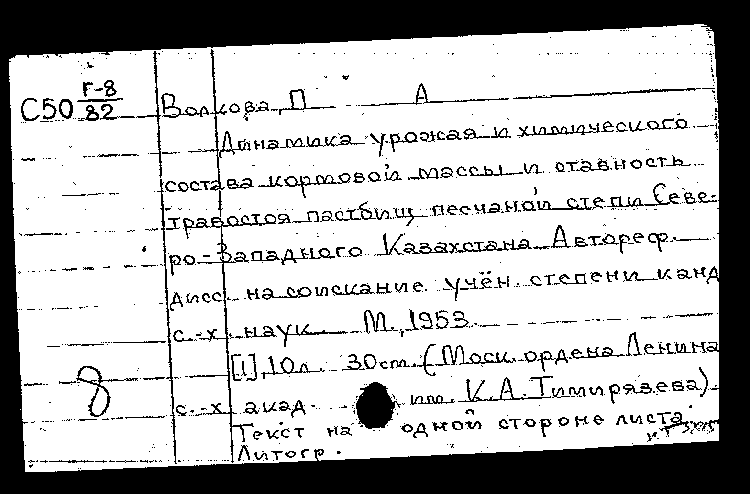 С50 Г-8/82 Волкова, П А
Динамика урожая и химического
состава кормовой массы и отавность
травостоя пастбищ песчаной степи Севе-
ро-Западного Казахстана. Автореф.
дисс. на соискание учён. степени канд
с.-х. наук. М., 1953.
[1], 10л. 30см. (Моск. ордена Ленина
8 с.-х. акад. им. К.А.Тимирязева).
Текст на одной стороне листа.
Литогр.